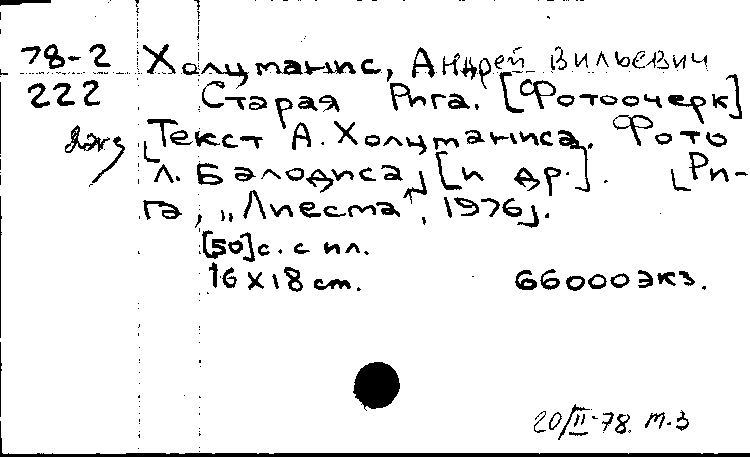 78-2 Холцманис, Андрей Вильевич
222 Старая Рига. [Фотоочерк]
2экз [Текст А. Холцманиса. Фото
Л. Балодиса] [и др.]. [Ри-
га, „Лиесма“, 1976].
[50] с. с ил.
16 х 18 cm. 66000 экз.
20/II-78. т.3